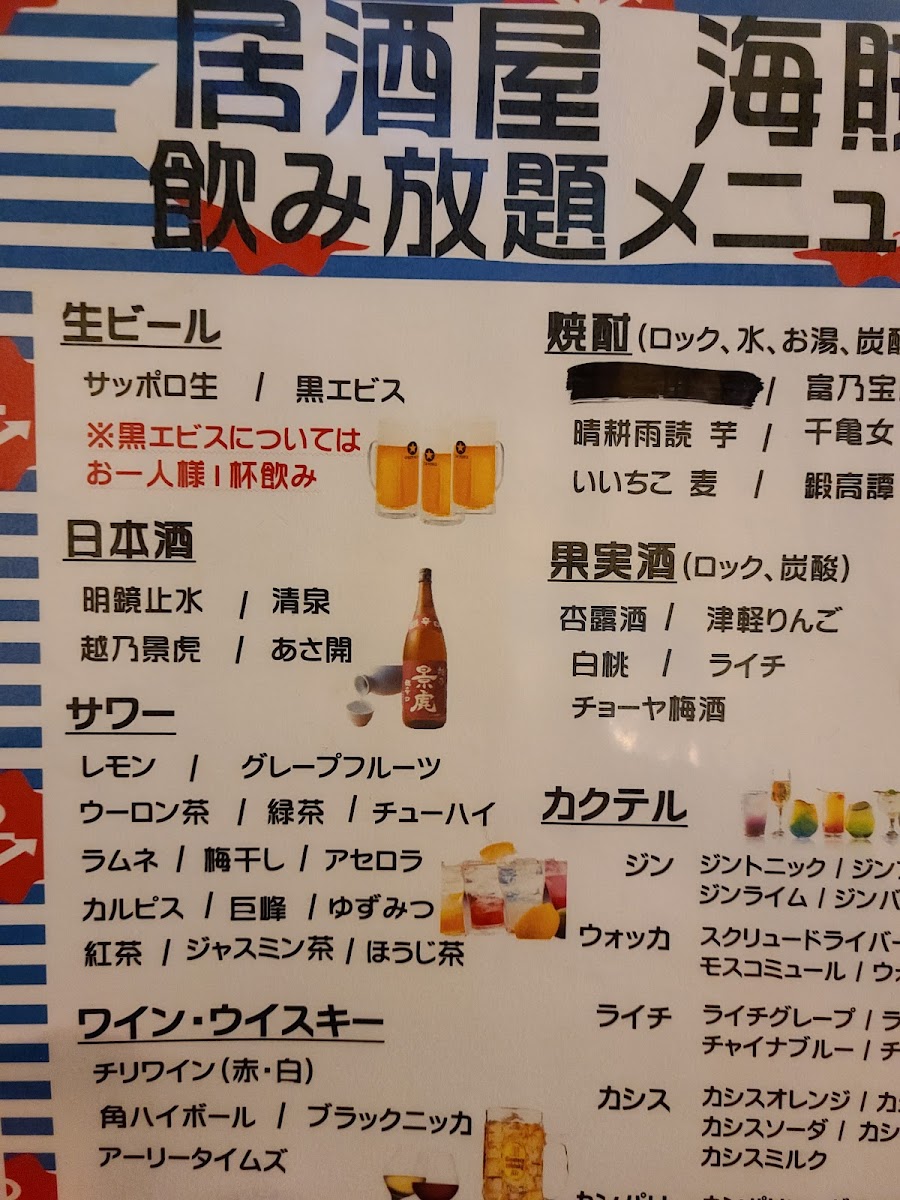 居酒屋 海賊
飲み放題メニュ
生ビール
サッポロ生 / 黒エビス
※黒エビスについては
お一人様1杯飲み
日本酒
明鏡止水 / 清泉
越乃景虎 / あさ開
景虎
サワー
レモン / グレープフルーツ
ウーロン茶 / 緑茶 / チューハイ
ラムネ / 梅干し / アセロラ
カルピス / 巨峰 / ゆずみつ
紅茶 / ジャスミン茶 / ほうじ茶
ワイン・ウイスキー
チリワイン(赤・白)
角ハイボール / ブラックニッカ
アーリータイムズ
焼酎(ロック、水、お湯、炭酸
/ 富乃宝
晴耕雨読 芋 / 千亀女
いいちこ 麦 / 鍛高譚
果実酒(ロック、炭酸)
杏露酒 / 津軽りんご
白桃 / ライチ
チョーヤ梅酒
カクテル
ジン ジントニック / ジン
ジンライム / ジンバ
ウォッカ スクリュードライバー
モスコミュール / ウォ
ライチ ライチグレープ / ラ
チャイナブルー / チ
カシス カシスオレンジ / カ
カシスソーダ / カシ
カシスミルク